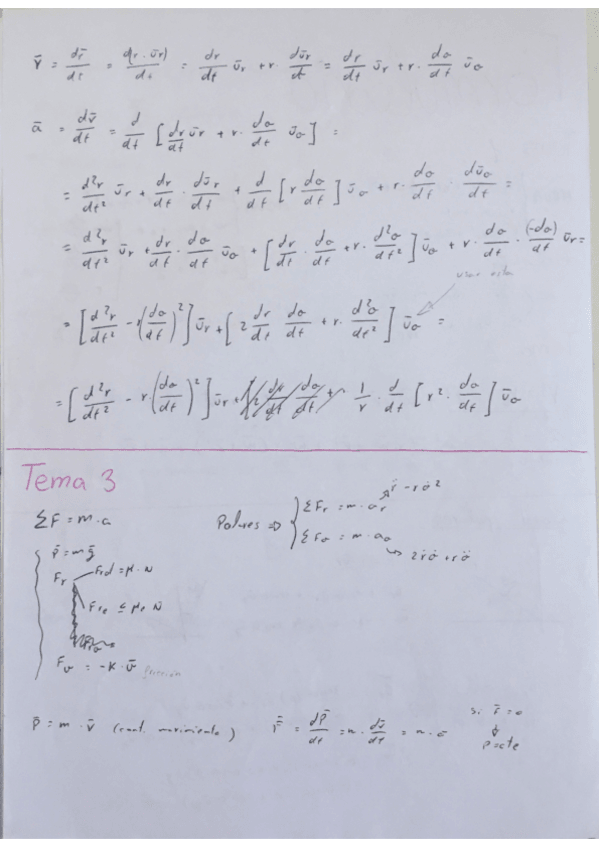 v̄ = dr̄/dt = d(r·ūr)/dt = dr/dt ūr + r· dūr/dt = dr/dt ūr + r· dσ/dt ūσ
ā = dv̄/dt = d/dt [dr/dt ūr + r· dσ/dt ūσ] =
= d²r/dt² ūr + dr/dt · dūr/dt + d/dt [r dσ/dt] ūσ + r· dσ/dt · dūσ/dt =
= d²r/dt² ūr + dr/dt · dσ/dt ūσ + [dr/dt · dσ/dt + r· d²σ/dt²] ūσ + r· dσ/dt · (-dσ)/dt ūr =
usar esta
= [d²r/dt² - r(dσ/dt)²] ūr + [2 dr/dt dσ/dt + r· d²σ/dt²] ūσ =
= [d²r/dt² - r(dσ/dt)²] ūr + 1/r · d/dt [r² · dσ/dt] ūσ
Tema 3
ΣF = m·a
Polares ⇒ { ΣFr = m·ar → r̈ - rσ̇²
ΣFσ = m·aσ → 2ṙσ̇ + rσ̈
p̄ = mḡ
Fr
Frd = μ·N
Fre ≤ μe N
Fv = -K·v̄ friccion
p̄ = m·v̄ (cant. movimiento) F̄ = dp̄/dt = m· dv̄/dt = m·a
si F̄ = 0
⇓
p = cte